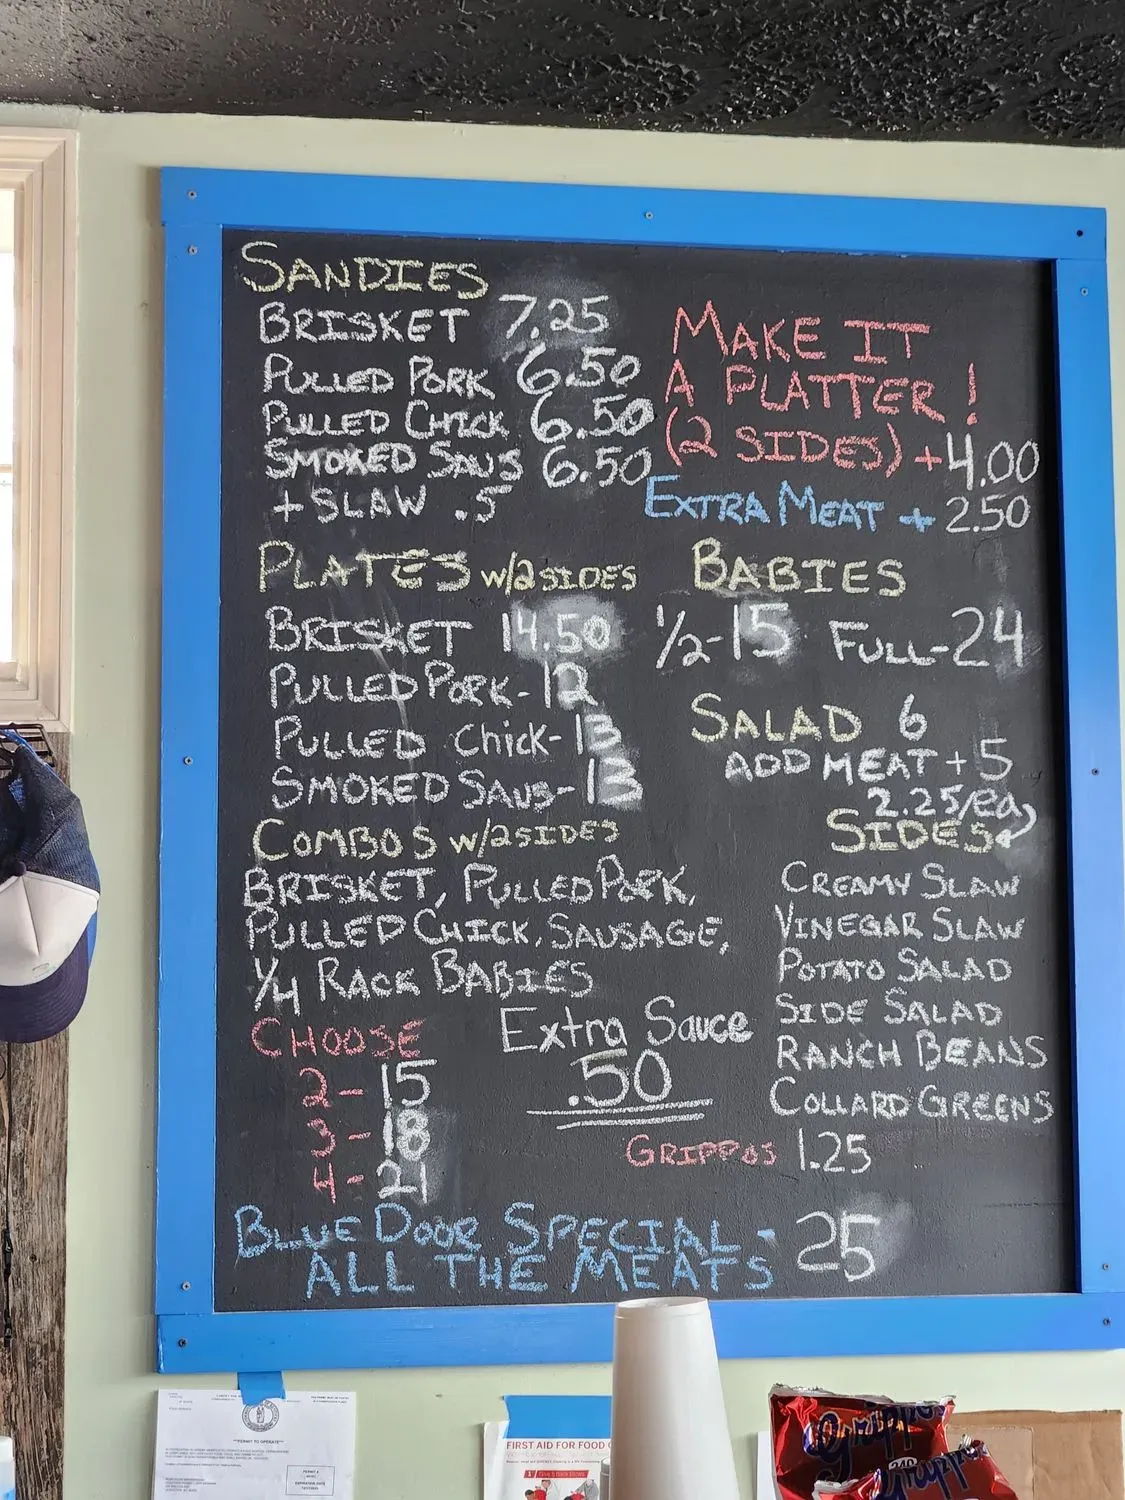 SANDIES
BRISKET 7.25
PULLED PORK 6.50
PULLED CHICK 6.50
SMOKED SAUS 6.50
+ SLAW .5
MAKE IT
A PLATTER!
(2 SIDES) + 4.00
EXTRA MEAT + 2.50
PLATES w/2 SIDES
BRISKET 14.50
PULLED PORK - 12
PULLED Chick - 13
SMOKED SAUS - 13
BABIES
1/2 - 15 FULL - 24
SALAD 6
ADD MEAT + 5
2.25/ea
SIDES
CREAMY SLAW
VINEGAR SLAW
POTATO SALAD
SIDE SALAD
RANCH BEANS
COLLARD GREENS
COMBOS w/2 SIDES
BRISKET, PULLED PORK,
PULLED CHICK, SAUSAGE,
1/4 RACK BABIES
CHOOSE
2 - 15
3 - 18
4 - 21
Extra Sauce
.50
GRIPPOS 1.25
BLUE DOOR SPECIAL - 25
ALL THE MEATS
PERMIT TO OPERATE
FIRST AID FOR FOOD
Grippo
Grippo